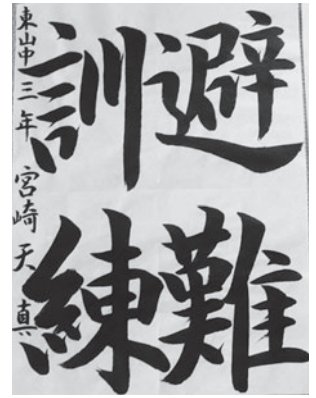 避難
訓練
東山中三年 宮崎天真